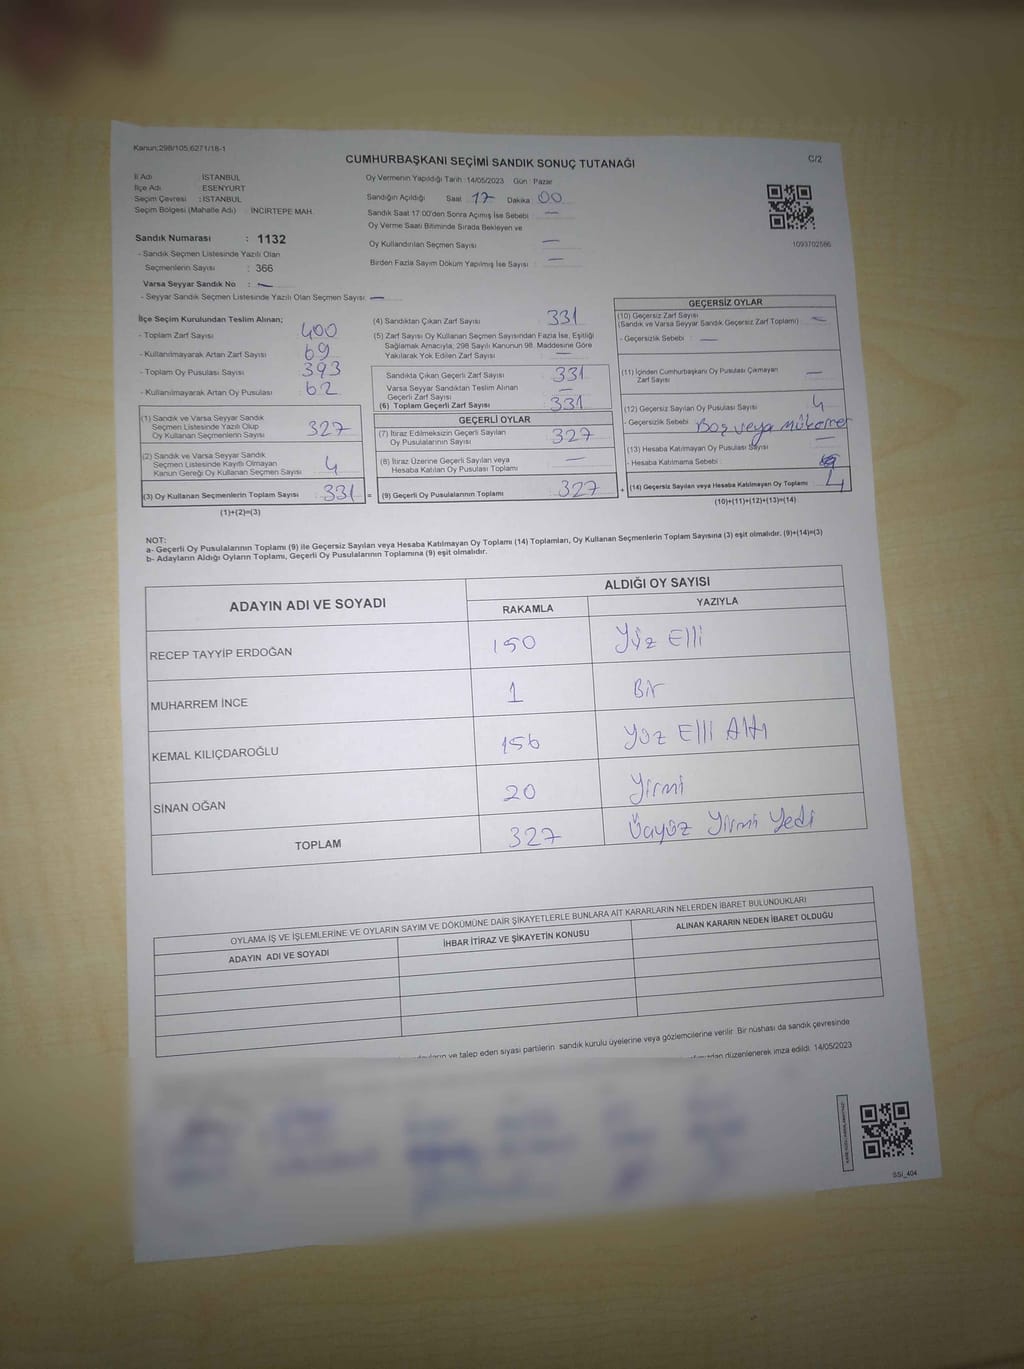 Kanun:298/105,6271/18-1
CUMHURBAŞKANI SEÇİMİ SANDIK SONUÇ TUTANAĞI
C/2
İl Adı : İSTANBUL
İlçe Adı : ESENYURT
Seçim Çevresi : İSTANBUL
Seçim Bölgesi (Mahalle Adı) : İNCİRTEPE MAH.
Oy Vermenin Yapıldığı Tarih :14/05/2023 Gün : Pazar
Sandığın Açıldığı Saat 17 Dakika 00
Sandık Saat 17:00'den Sonra Açımış İse Sebebi : —
Oy Verme Saati Bitiminde Sırada Bekleyen ve
Oy Kullandırılan Seçmen Sayısı —
Birden Fazla Sayım Döküm Yapılmış İse Sayısı : —
1093702586
Sandık Numarası : 1132
- Sandık Seçmen Listesinde Yazılı Olan
Seçmenlerin Sayısı : 366
Varsa Seyyar Sandık No : —
- Seyyar Sandık Seçmen Listesinde Yazılı Olan Seçmen Sayısı: —
İlçe Seçim Kurulundan Teslim Alınan;
- Toplam Zarf Sayısı 400
- Kullanılmayarak Artan Zarf Sayısı 69
- Toplam Oy Pusulası Sayısı 393
- Kullanılmayarak Artan Oy Pusulası 62
(1) Sandık ve Varsa Seyyar Sandık
Seçmen Listesinde Yazılı Olup
Oy Kullanan Seçmenlerin Sayısı 327
(2) Sandık ve Varsa Seyyar Sandık
Seçmen Listesinde Kayıtlı Olmayan
Kanun Gereği Oy Kullanan Seçmen Sayısı 4
(3) Oy Kullanan Seçmenlerin Toplam Sayısı 331 =
(1)+(2)=(3)
(4) Sandıktan Çıkan Zarf Sayısı 331
(5) Zarf Sayısı Oy Kullanan Seçmen Sayısından Fazla İse, Eşitliği
Sağlamak Amacıyla; 298 Sayılı Kanunun 98. Maddesine Göre
Yakılarak Yok Edilen Zarf Sayısı —
Sandıkta Çıkan Geçerli Zarf Sayısı 331
Varsa Seyyar Sandıktan Teslim Alınan
Geçerli Zarf Sayısı —
(6) Toplam Geçerli Zarf Sayısı 331
GEÇERLİ OYLAR
(7) İtiraz Edilmeksizin Geçerli Sayılan
Oy Pusulalarının Sayısı 327
(8) İtiraz Üzerine Geçerli Sayılan veya
Hesaba Katılan Oy Pusulası Toplamı —
(9) Geçerli Oy Pusulalarının Toplamı 327 +
GEÇERSİZ OYLAR
(10) Geçersiz Zarf Sayısı
(Sandık ve Varsa Seyyar Sandık Geçersiz Zarf Toplamı) —
- Geçersizlik Sebebi : —
(11) İçinden Cumhurbaşkanı Oy Pusulası Çıkmayan
Zarf Sayısı —
(12) Geçersiz Sayılan Oy Pusulası Sayısı 4
- Geçersizlik Sebebi : Boş veya mükerrer
(13) Hesaba Katılmayan Oy Pusulası Sayısı —
- Hesaba Katılmama Sebebi :
(14) Geçersiz Sayılan veya Hesaba Katılmayan Oy Toplamı 4
(10)+(11)+(12)+(13)=(14)
NOT:
a- Geçerli Oy Pusulalarının Toplamı (9) ile Geçersiz Sayılan veya Hesaba Katılmayan Oy Toplamı (14) Toplamları, Oy Kullanan Seçmenlerin Toplam Sayısına (3) eşit olmalıdır. (9)+(14)=(3)
b- Adayların Aldığı Oyların Toplamı, Geçerli Oy Pusulalarının Toplamına (9) eşit olmalıdır.
ADAYIN ADI VE SOYADI
ALDIĞI OY SAYISI
RAKAMLA YAZIYLA
RECEP TAYYİP ERDOĞAN 150 Yüz Elli
MUHARREM İNCE 1 Bir
KEMAL KILIÇDAROĞLU 156 Yüz Elli Altı
SİNAN OĞAN 20 Yirmi
TOPLAM 327 Üçyüz Yirmi Yedi
OYLAMA İŞ VE İŞLEMLERİNE VE OYLARIN SAYIM VE DÖKÜMÜNE DAİR ŞİKAYETLERLE BUNLARA AİT KARARLARIN NELERDEN İBARET BULUNDUKLARI
ADAYIN ADI VE SOYADI İHBAR İTİRAZ VE ŞİKAYETİN KONUSU ALINAN KARARIN NEDEN İBARET OLDUĞU
ve talep eden siyasi partilerin sandık kurulu üyelerine veya gözlemcilerine verilir. Bir nüshası da sandık çevresinde
düzenlenerek imza edildi. 14/05/2023
SSI_404